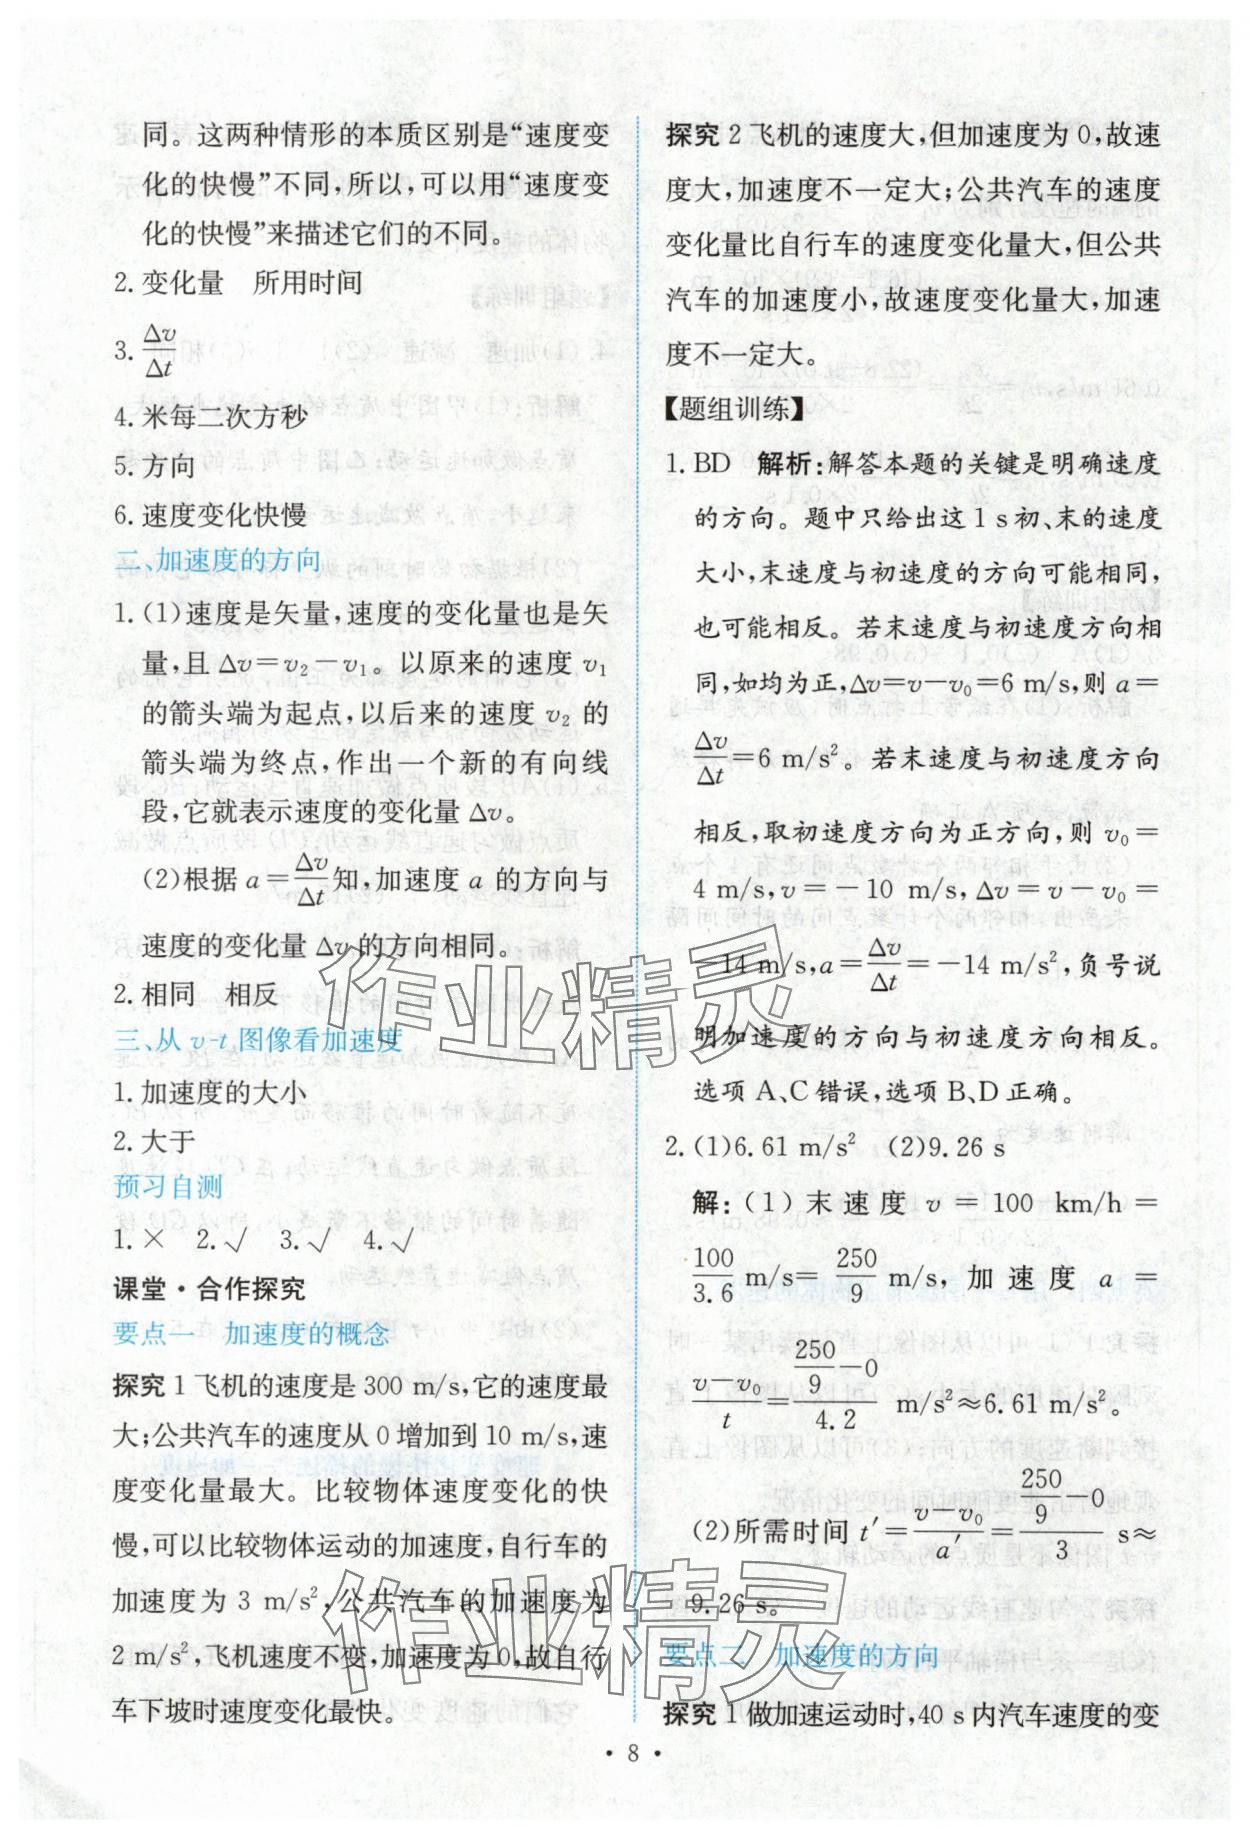 同。这两种情形的本质区别是“速度变
化的快慢”不同,所以,可以用“速度变
化的快慢”来描述它们的不同。
2. 变化量　所用时间
3. Δv/Δt
4. 米每二次方秒
5. 方向
6. 速度变化快慢
二、加速度的方向
1. (1)速度是矢量,速度的变化量也是矢
量,且 Δv=v₂−v₁。以原来的速度 v₁
的箭头端为起点,以后来的速度 v₂ 的
箭头端为终点,作出一个新的有向线
段,它就表示速度的变化量 Δv。
(2)根据 a=Δv/Δt知,加速度 a 的方向与
速度的变化量 Δv 的方向相同。
2. 相同　相反
三、从 v-t 图像看加速度
1. 加速度的大小
2. 大于
预习自测
1. ×　2. √　3. √　4. √
课堂·合作探究
要点一　加速度的概念
探究 1 飞机的速度是 300 m/s,它的速度最
大;公共汽车的速度从 0 增加到 10 m/s,速
度变化量最大。比较物体速度变化的快
慢,可以比较物体运动的加速度,自行车的
加速度为 3 m/s²,公共汽车的加速度为
2 m/s²,飞机速度不变,加速度为 0,故自行
车下坡时速度变化最快。
探究 2 飞机的速度大,但加速度为 0,故速
度大,加速度不一定大;公共汽车的速度
变化量比自行车的速度变化量大,但公共
汽车的加速度小,故速度变化量大,加速
度不一定大。
【题组训练】
1. BD　解析:解答本题的关键是明确速度
的方向。题中只给出这 1 s 初、末的速度
大小,末速度与初速度的方向可能相同,
也可能相反。若末速度与初速度方向相
同,如均为正,Δv=v−v₀=6 m/s,则 a=
Δv/Δt=6 m/s²。若末速度与初速度方向
相反,取初速度方向为正方向,则 v₀=
4 m/s,v=−10 m/s,Δv=v−v₀=
−14 m/s,a=Δv/Δt=−14 m/s²,负号说
明加速度的方向与初速度方向相反。
选项 A、C 错误,选项 B、D 正确。
2. (1)6.61 m/s²　(2)9.26 s
解:(1)末速度 v=100 km/h=
100/3.6 m/s=250/9 m/s,加速度 a=
(v−v₀)/t=(250/9−0)/4.2 m/s²≈6.61 m/s²。
(2)所需时间 t′=(v−v₀)/a′=(250/9−0)/3 s≈
9.26 s。
要点二　加速度的方向
探究 1 做加速运动时,40 s 内汽车速度的变
· 8 ·
作业精灵
作业精灵